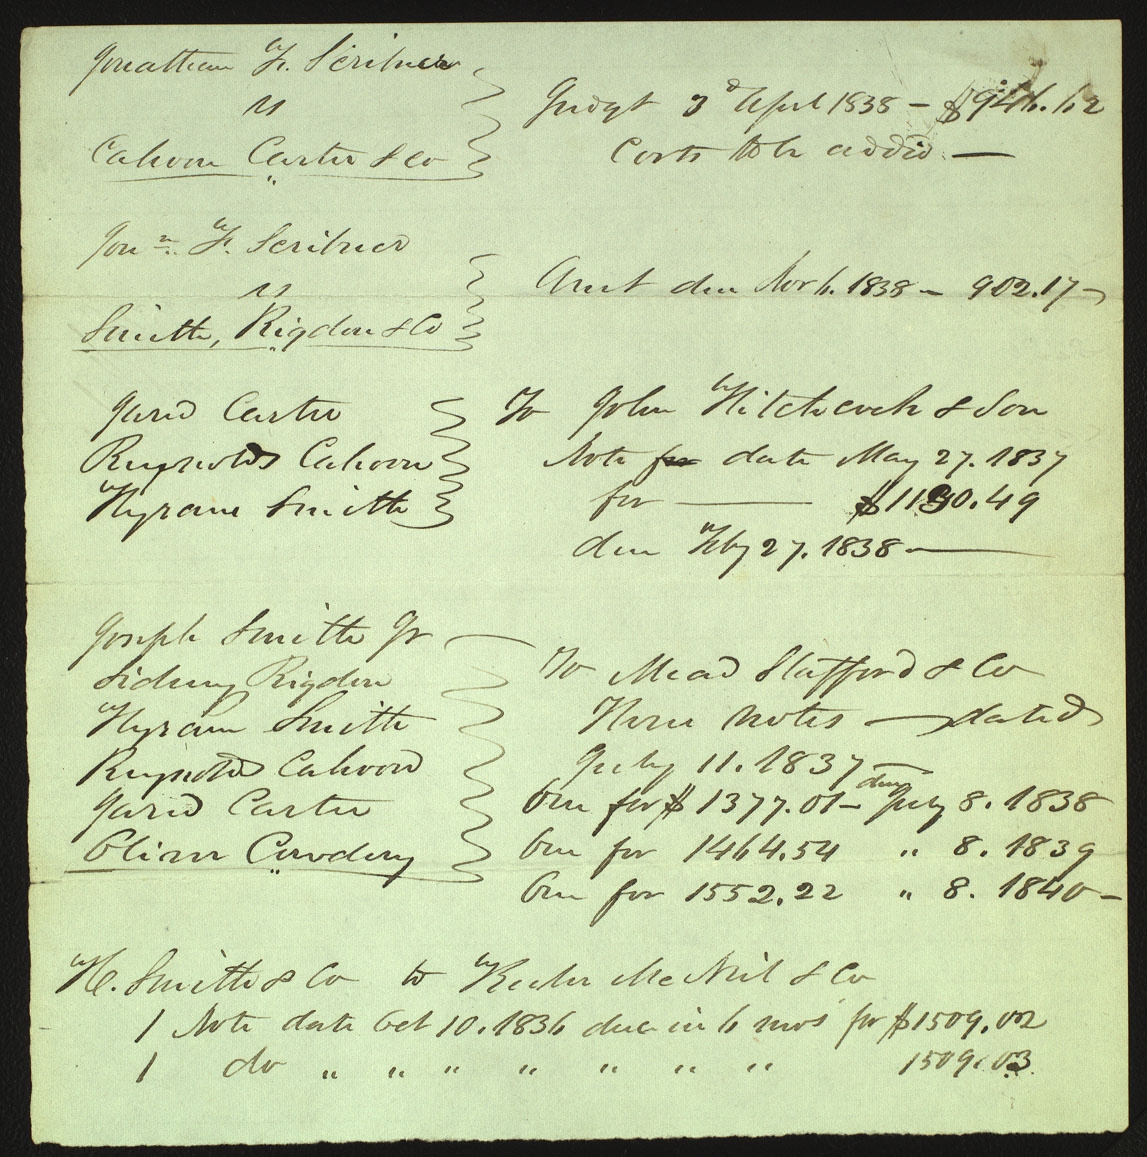 Jonathan F. Scribner
vs
Cahoon Carter & Co
Judgt 3d Aprl 1838 - $946.62
Costs to be added —
Jonn. F. Scribner
vs
Smith, Rigdon & Co
Amt due Nov 6. 1838 - 902.17 -
Jared Carter
Reynolds Cahoon
Hyram Smith
To John Hitchcock & Son
Note for date May 27. 1837
for ——— $1190.49
due Feby 27. 1838 ———
Joseph Smith Jr
Sidney Rigdon
Hyram Smith
Reynolds Cahoon
Jared Carter
Oliver Cowdery
To Mead Stafford & Co
Three notes — dated
July 11. 1837 —
One for $ 1377.01 - due July 8. 1838
One for 1464.54 " 8. 1839
One for 1552.22 " 8. 1840 -
H. Smith & Co to Keeler McNeil & Co
1 Note date Oct 10. 1836 due in 6 mos for $1509.02
1 do " " " " " " " 1509.03